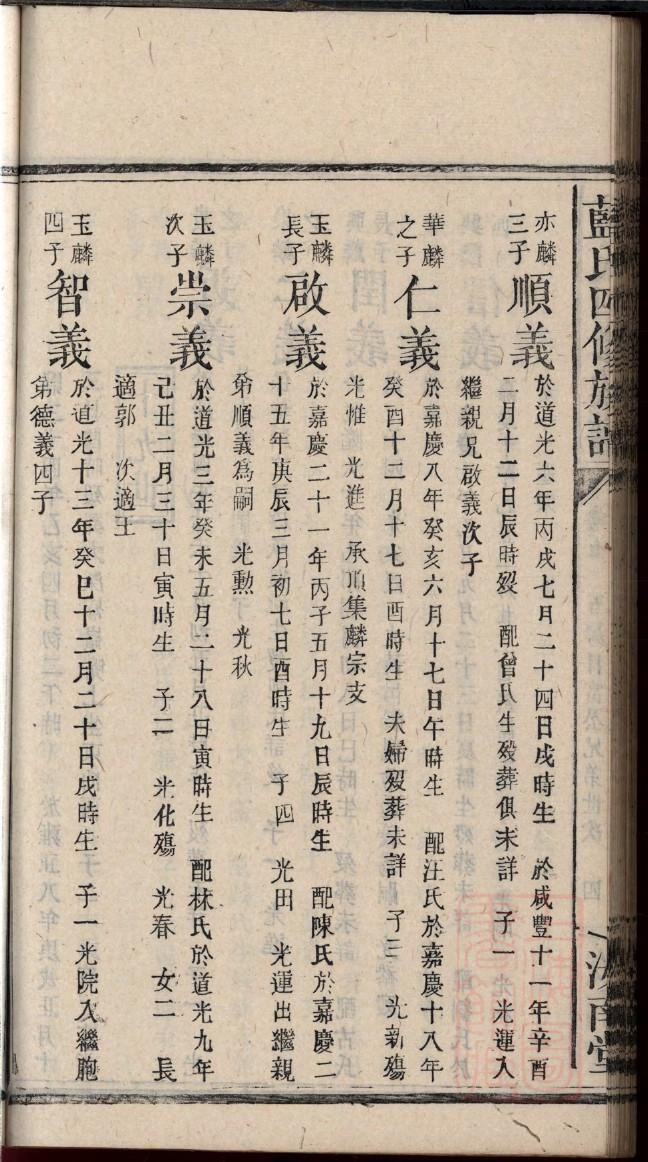 藍氏四修族譜
汝南堂
亦麟三子 順義 於道光六年丙戌七月二十四日戌時生 於咸豐十一年辛酉
二月十二日辰時歿 配曾氏生歿葬俱未詳 子一 光運入
繼親兄啟義次子
華麟之子 仁義 於嘉慶八年癸亥六月十七日午時生 配汪氏於嘉慶十八年
癸酉十二月十七日酉時生 夫婦歿葬未詳 子三 光新殤
光惟 光進 承頂集麟宗支
玉麟長子 啟義 於嘉慶二十一年丙子五月十九日辰時生 配陳氏於嘉慶二
十五年庚辰三月初七日酉時生 子四 光田 光運出繼親
弟順義為嗣 光勲 光秋
玉麟次子 崇義 於道光三年癸未五月二十八日寅時生 配林氏於道光九年
己丑二月三十日寅時生 子二 光化殤 光春 女二 長
適郭 次適王
玉麟四子 智義 於道光十三年癸巳十二月二十日戌時生 子一光院入繼胞
弟德義四子